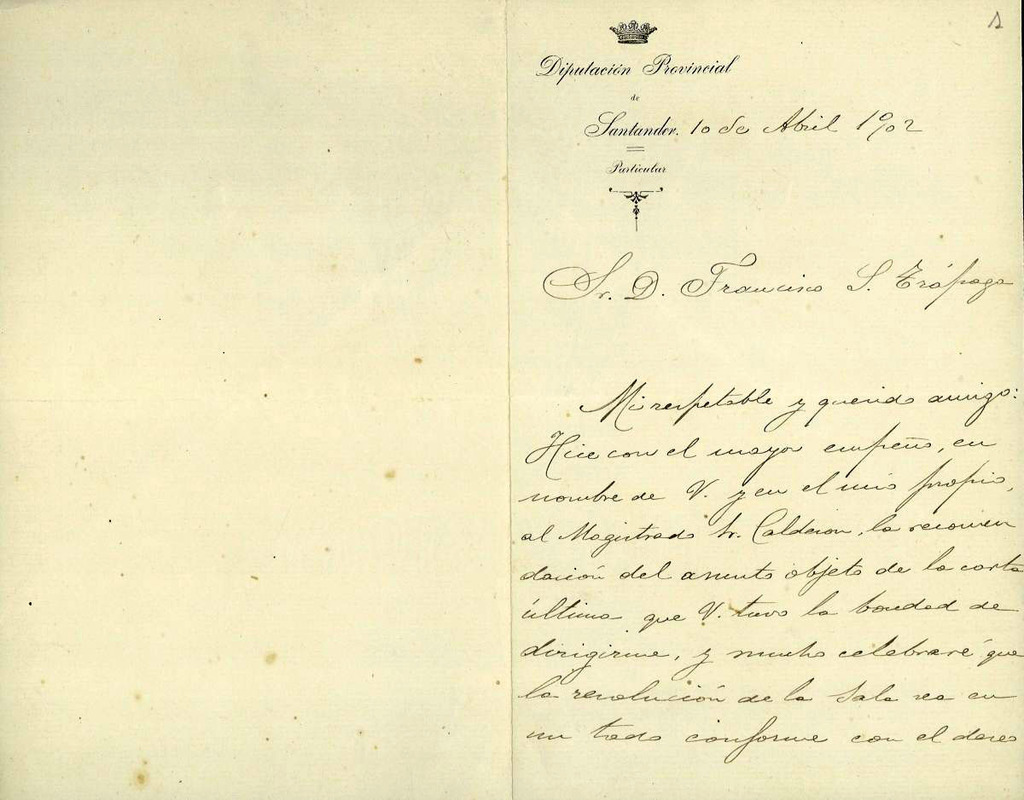 Diputación Provincial
de
Santander. 10 de Abril 1902
Particular
Sr. D. Francisco S. Trápaga
Mi respetable y querido amigo:
Hice con el mayor empeño, en
nombre de V. y en el mio propio,
al Magistrado Sr. Calderon, la recomen
dación del asunto objeto de la carta
última que V. tuvo la bondad de
dirigirme, y mucho celebraré que
la resolución de la Sala sea en
un todo conforme con el deseo